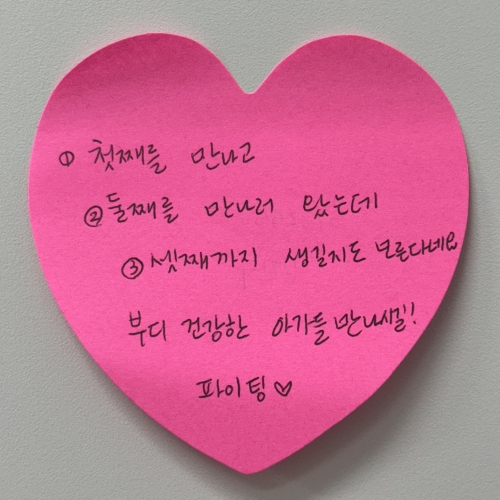 ① 첫째를 만나고
② 둘째를 만나러 왔는데
③ 셋째까지 생길지도 모른다네요
부디 건강한 아가들 만나시길!
파이팅♡